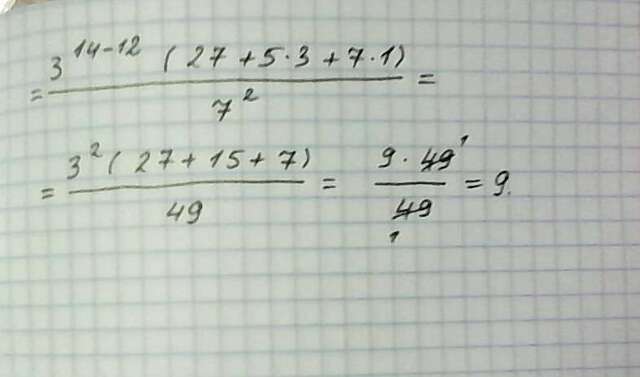 = 3^{14-12} (27 + 5·3 + 7·1) / 7^2 =
= 3^2 (27 + 15 + 7) / 49 = 9 · 49^1 / 49_1 = 9.